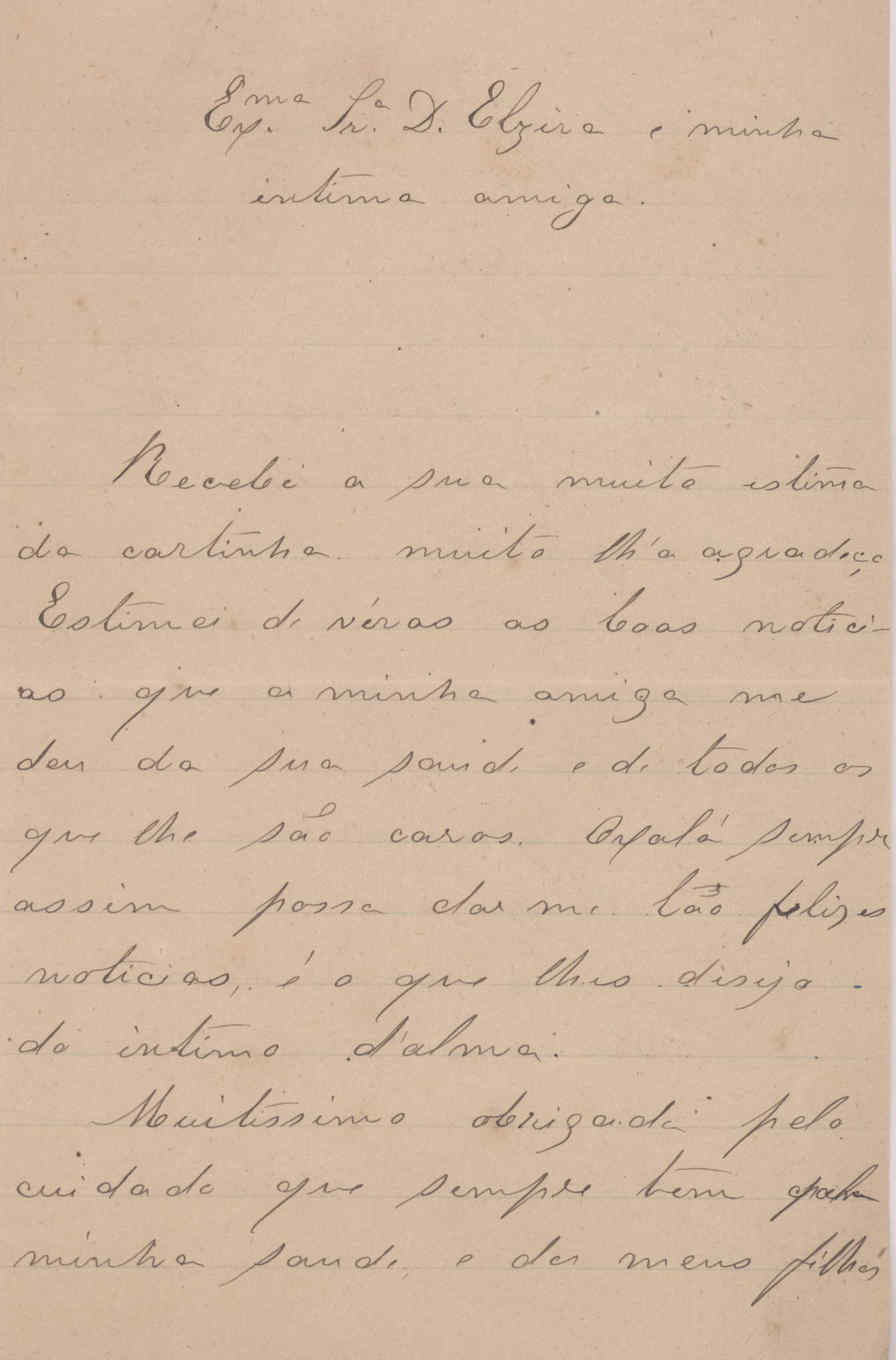 Ex.ma Sr.a D. Elzira e minha
intima amiga.
Recebi a sua muito estima
da cartinha muito lh'a agradeço
Estimei de véras as boas notici-
as que a minha amiga me
deu da sua saude e de todos os
que lhe são caros. Oxalá sempre
assim possa dar me tão felizes
noticias, é o que lhes desejo
do intimo d'alma.
Muitissimo obrigada pelo
cuidado que sempre tem pela
minha saude, e dos meus filhos